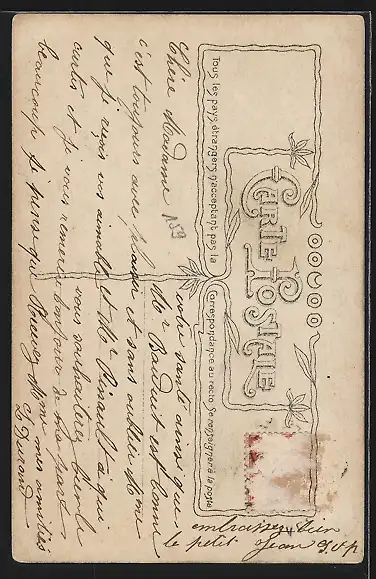 CARTE POSTALE
Tous les pays étrangers n'acceptant pas la Correspondance au recto Se renseigner à la poste
159
Chère Madame
c'est toujours avec plaisir
que je reçois vos aimable
cartes et je vous remercie
beaucoup je pense que
votre santé ainsi que
de Mr est bonne
et sans oublier Mme
et Mr à qui
vous souhaiterez bientôt
bonjour de notre part
Mme mes amitiés
L. Durand
embrassez bien
le petit Jean